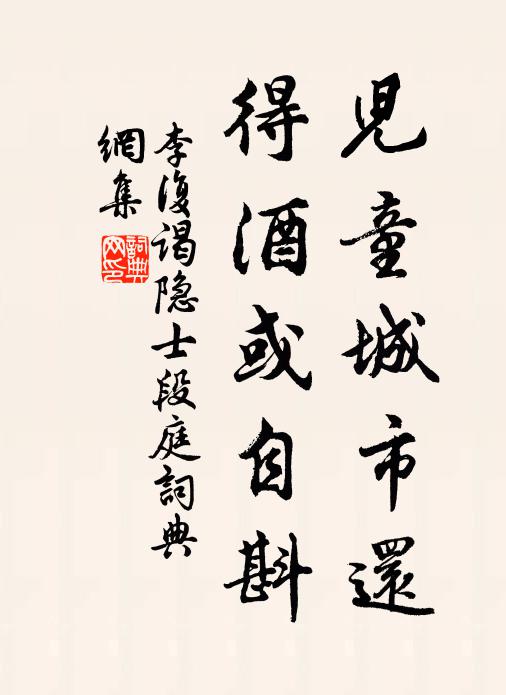 兒童城市還
得酒或自斟
李復謁隐士段庭詞典
網集
詞典網印